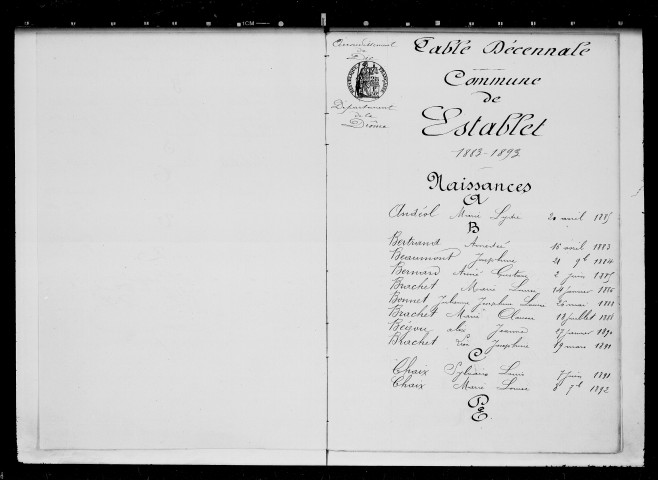 Arrondissement
de
Die
Département
de la
Drôme
Table Décennale
Commune
de
Establet
1883-1893
Naissances
A
Andéol Marie Lydie 20 avril 1885
B
Bertrand Amédée 16 avril 1883
Beaumont Joséphine 21 9b 1884
Bernard Aimé Gustave 2 juin 1885
Brachet Marie Louise 14 janvier 1886
Bonnet Julienne Joséphine Louise 26 mai 1888
Brachet Marie 18 juillet 1888
Bégou Jeanne 17 janvier 1890
Brachet Joséphine 19 mars 1891
C
Chaix Sylvanie Louise 7 juin 1891
Chaix Marie Louise 8 7b 1892
D
E